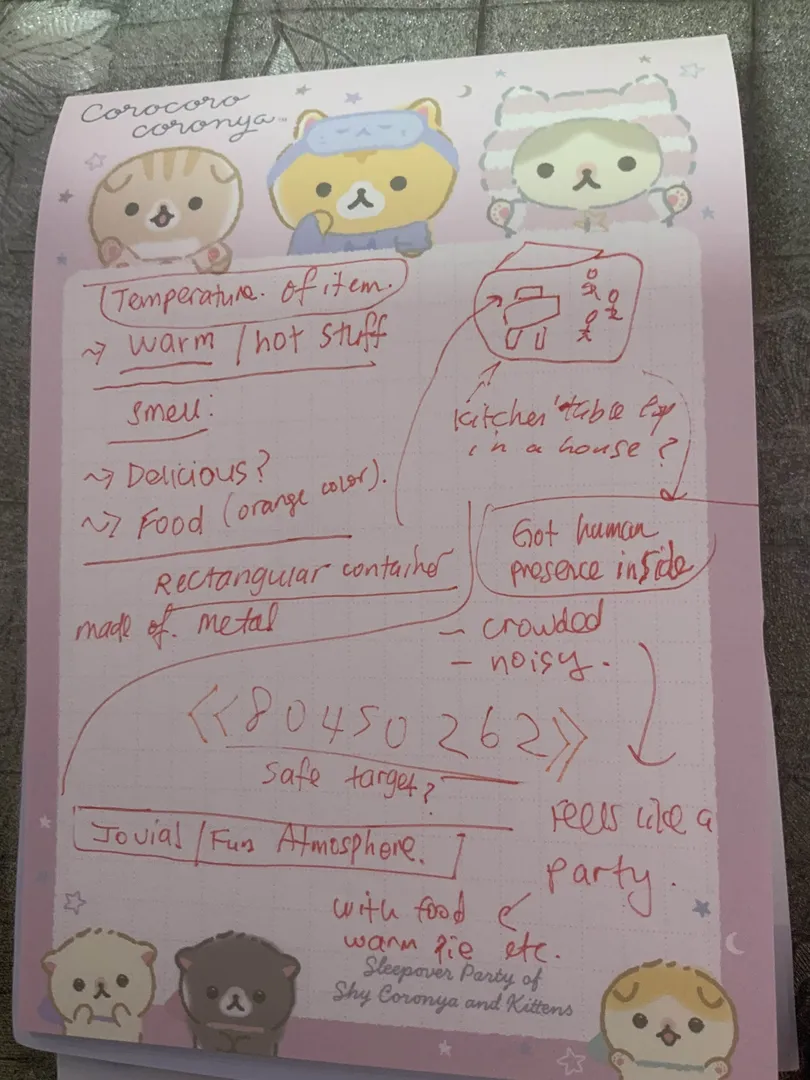 Corocoro
coronya™
Temperature. of item.
~> warm / hot stuff
smell:
~> Delicious?
~> Food (orange color).
Rectangular container
made of. metal
Kitchen table
in a house?
Got human
presence inside
- crowded
- noisy.
<<80450262>>
safe target?
Jovial / Fun Atmosphere.
Feels like a
party.
with food
warm pie etc.
Sleepover Party of
Shy Coronya and Kittens